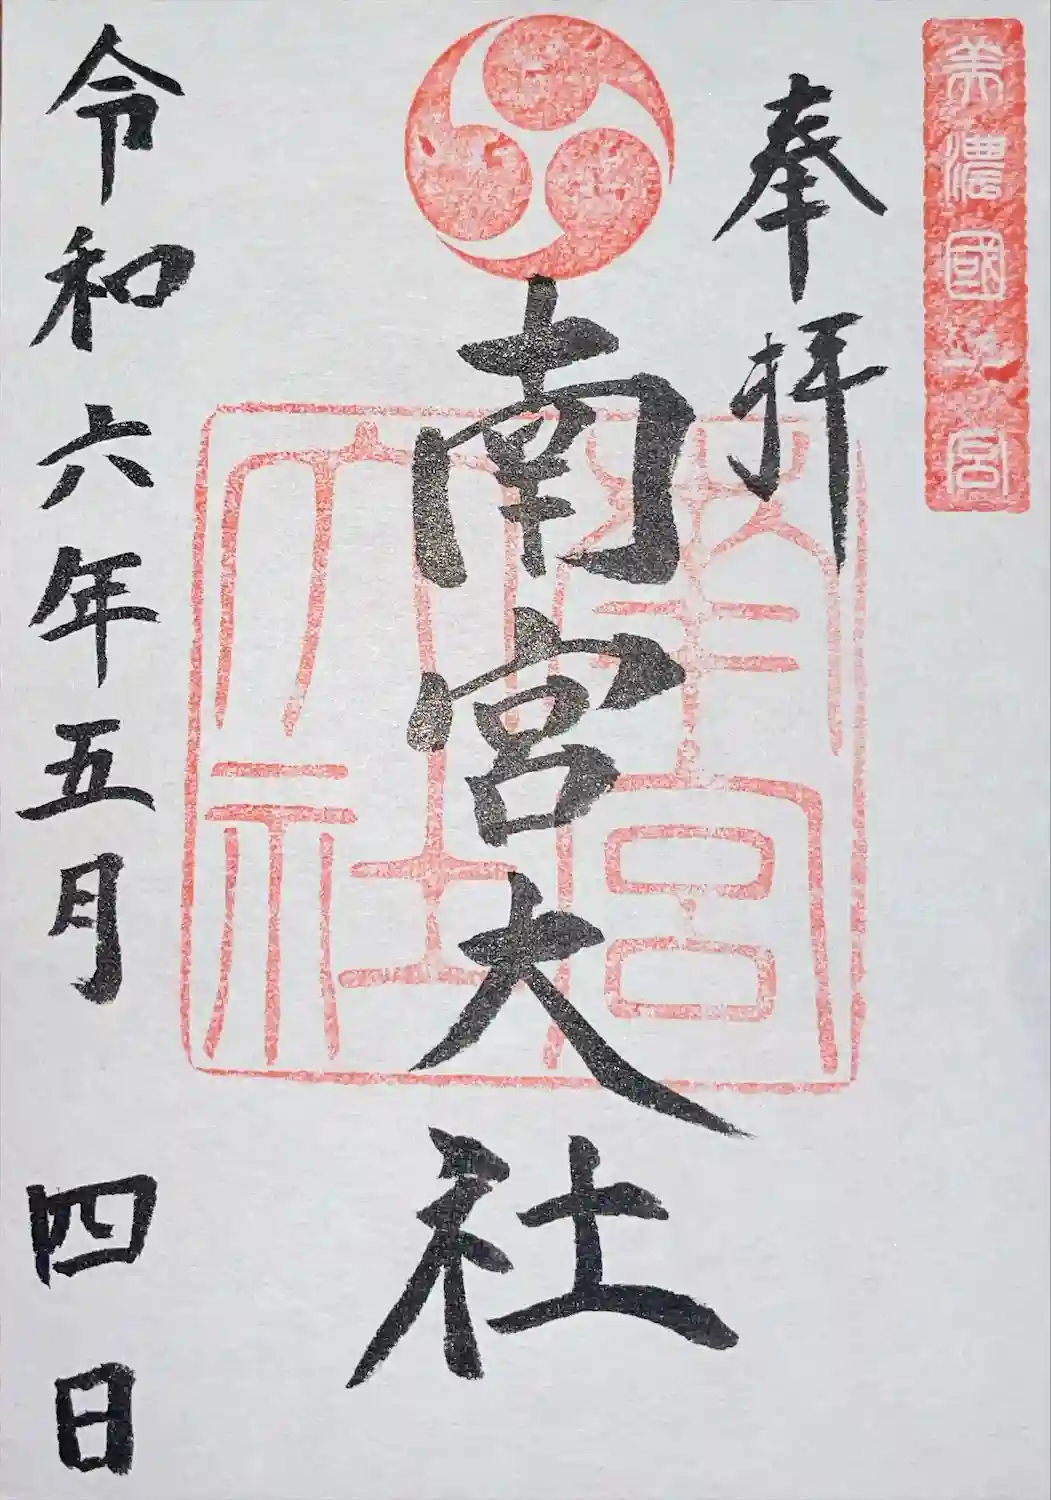 美濃國一宮
奉拝
南宮大社
南宮
大社
令和六年五月 四日